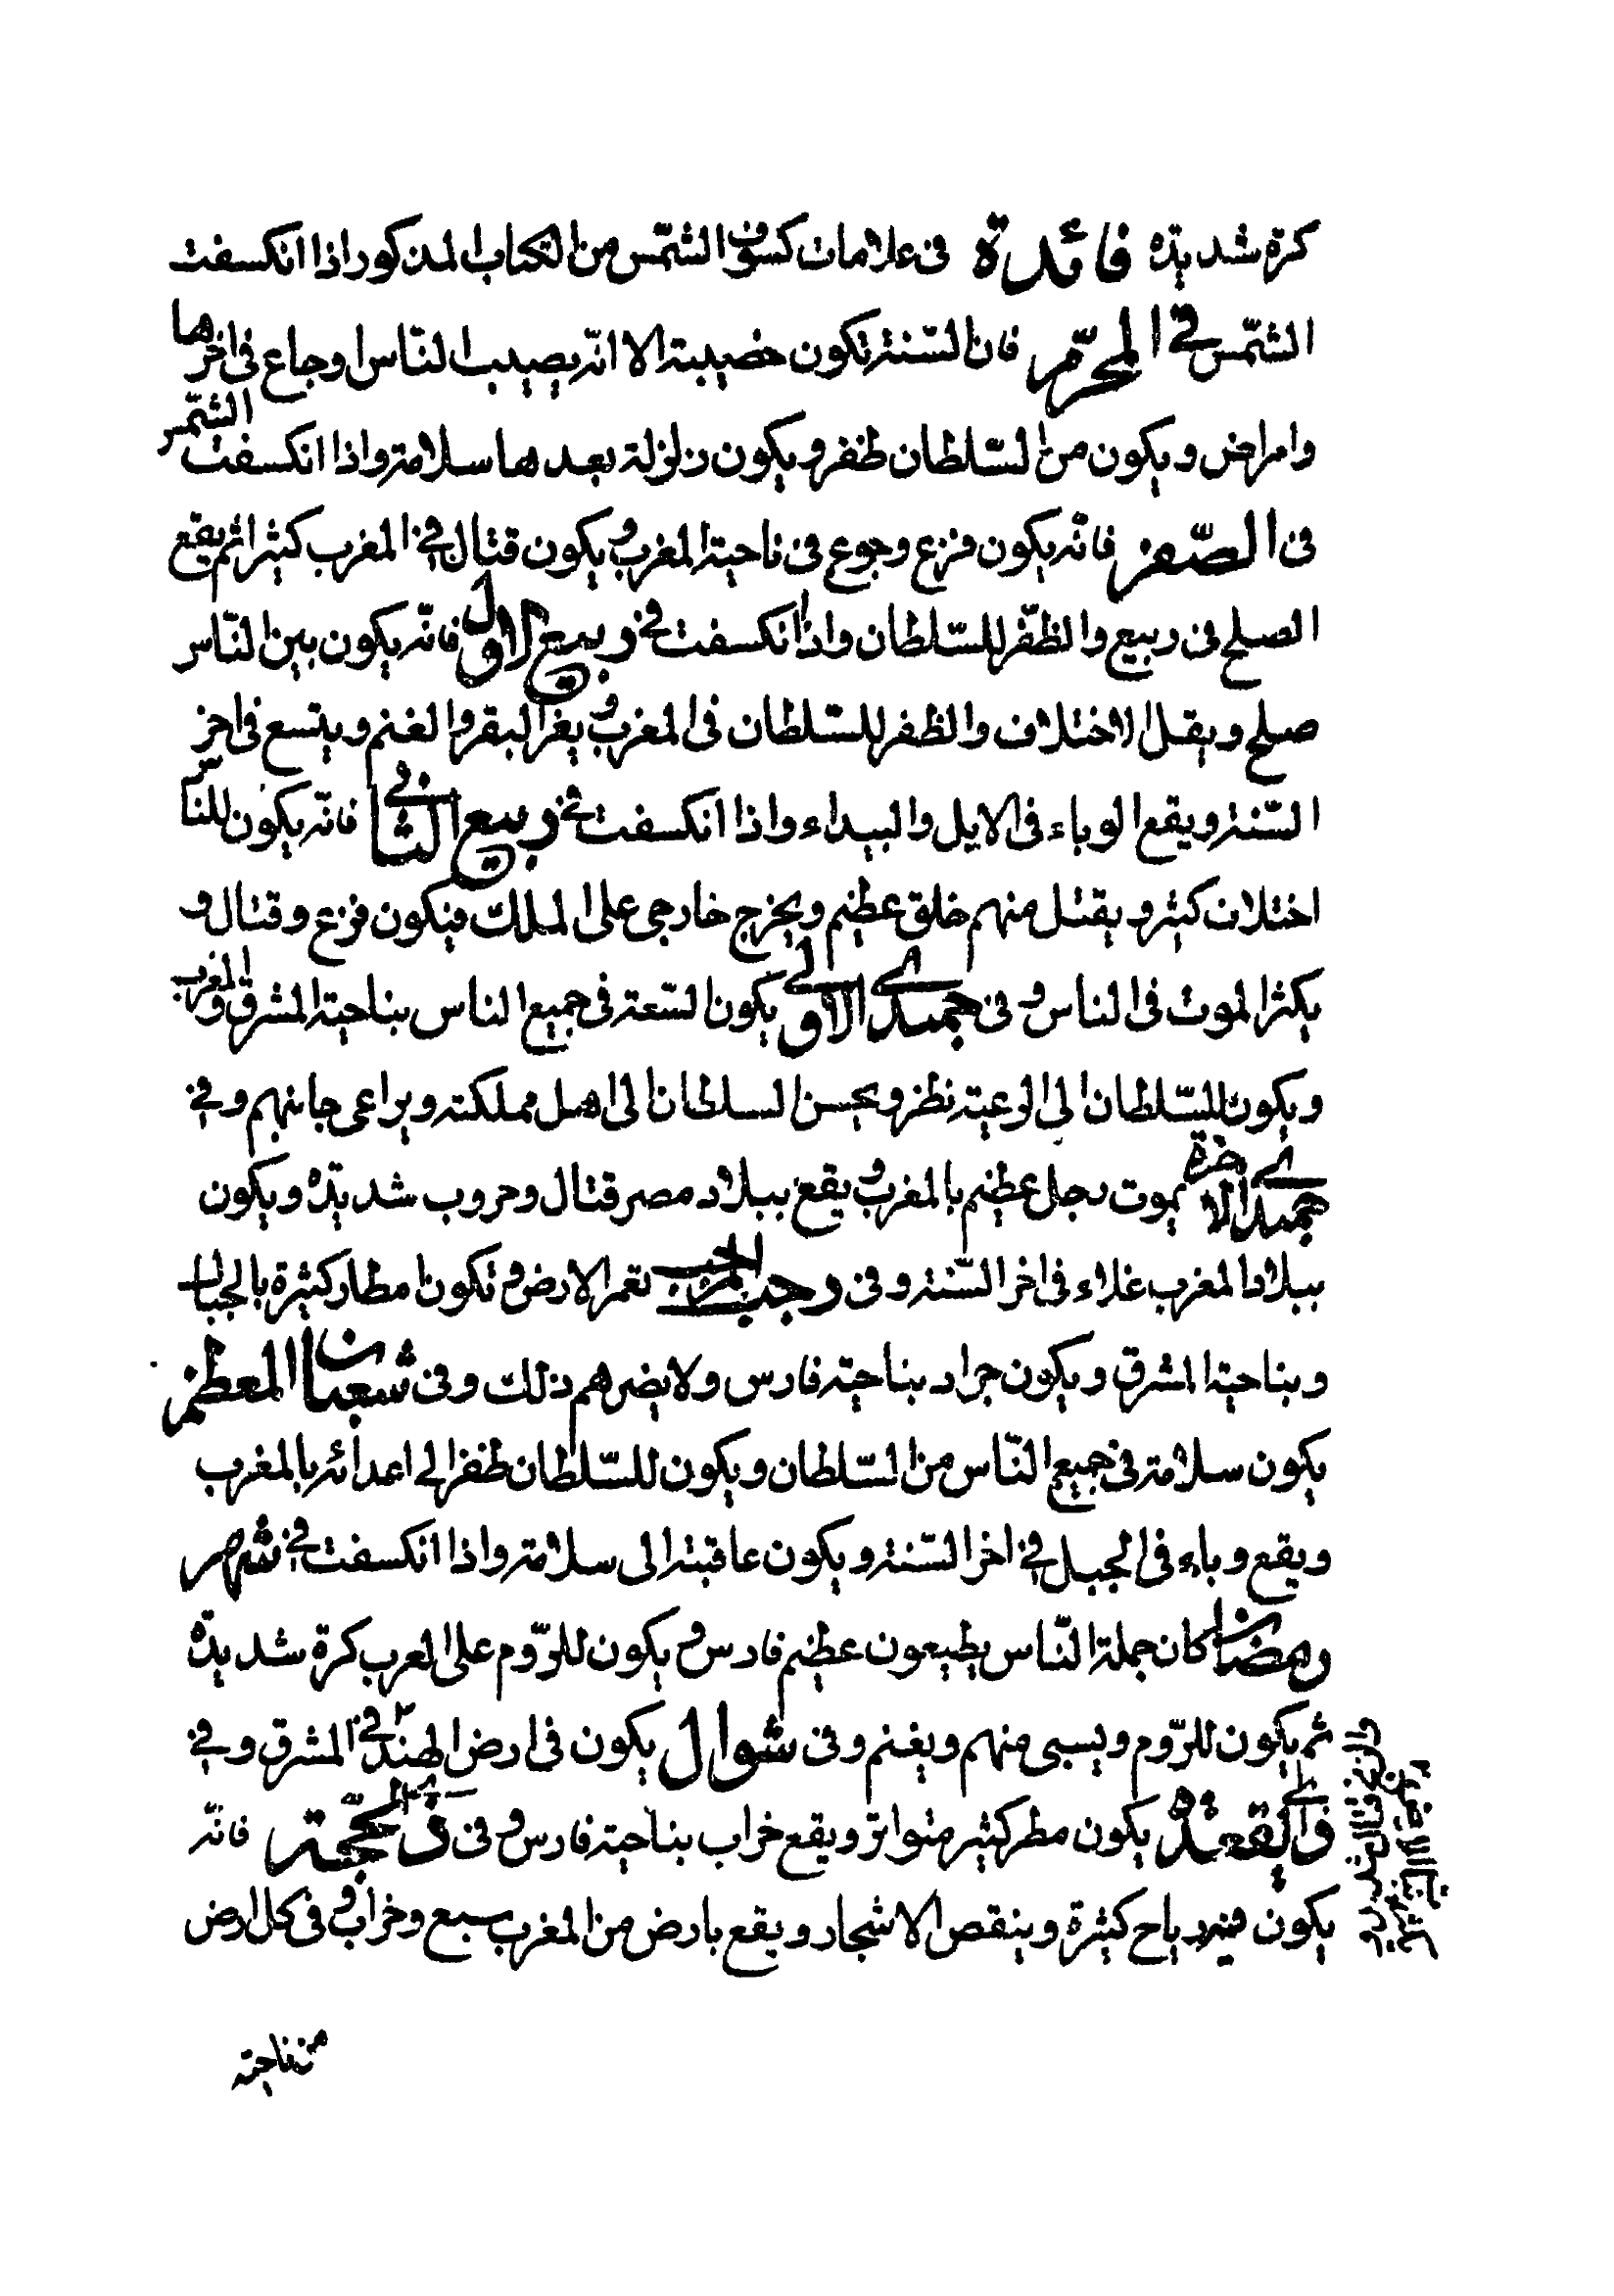 كرة شديدة فائدة فى علامات كسوف الشّمس من الكتاب المذكور اذا انكسفت
الشّمس فى المحرّم فان السّنة تكون خصيبة الا انّه يصيب النّاس اوجاع فى اخرها
وامراض ويكون من السّلطان ظفر ويكون زلزلة بعدها سلامة واذا انكسفت الشّمس
فى الصّفر فانّه يكون فزع وجوع فى ناحية المغرب ويكون قتال فى المغرب كثيرا ثم يقع
الصلح فى ربيع والظّفر للسّلطان واذا انكسفت فى ربيع الاول فانّه يكون بين النّاس
صلح ويقل الاختلاف والظفر للسّلطان فى المغرب ويغر البقر والغنم ويتسع فى اخر
السّنة ويقع الوباء فى الابل والبيداء واذا انكسفت فى ربيع الثانى فانّه يكون للناس
اختلاف كثير ويقتل منهم خلق عظيم ويخرج خارجى على الملك فيكون فزع وقتال و
يكثر الموت فى الناس وفى جميدى الاولى يكون السّعة فى جميع الناس بناحية المشرق والمغرب
ويكون للسّلطان الى الرعيّة نظر ويحسن السلطان الى اهل مملكته ويراعى جانبهم وفى
جميدى الاخرة يموت رجل عظيم بالمغرب ويقع ببلاد مصر قتال وحروب شديدة ويكون
ببلاد المغرب غلاء فى اخر السّنة وفى رجب المرجب تعمر الارض وتكون امطار كثيرة بالجبال
وبناحية المشرق ويكون جراد بناحية فارس ولا يضرهم ذلك وفى شعبان المعظم
يكون سلامة فى جميع النّاس من السّلطان ويكون للسّلطان ظفر الى اعدائه بالمغرب
ويقع وباء فى الجبل فى اخر السّنة ويكون عاقبته الى سلامة واذا انكسفت فى شهر
رمضان كان جملة النّاس يطيعون عظيم فارس ويكون للرّوم على العرب كرة شديدة
ثم يكون للرّوم ويسبى منهم ويغنم وفى شوال يكون فى ارض الهند فى المشرق وفى
ذى القعدة يكون مطر كثير متواتر ويقع خراب بناحية فارس وفى ذى الحجّة فانّه
يكون فيه رياح كثيرة وينقص الاشجار ويقع بارض من المغرب سبع وخراب وفى كل ارض
من ناحية